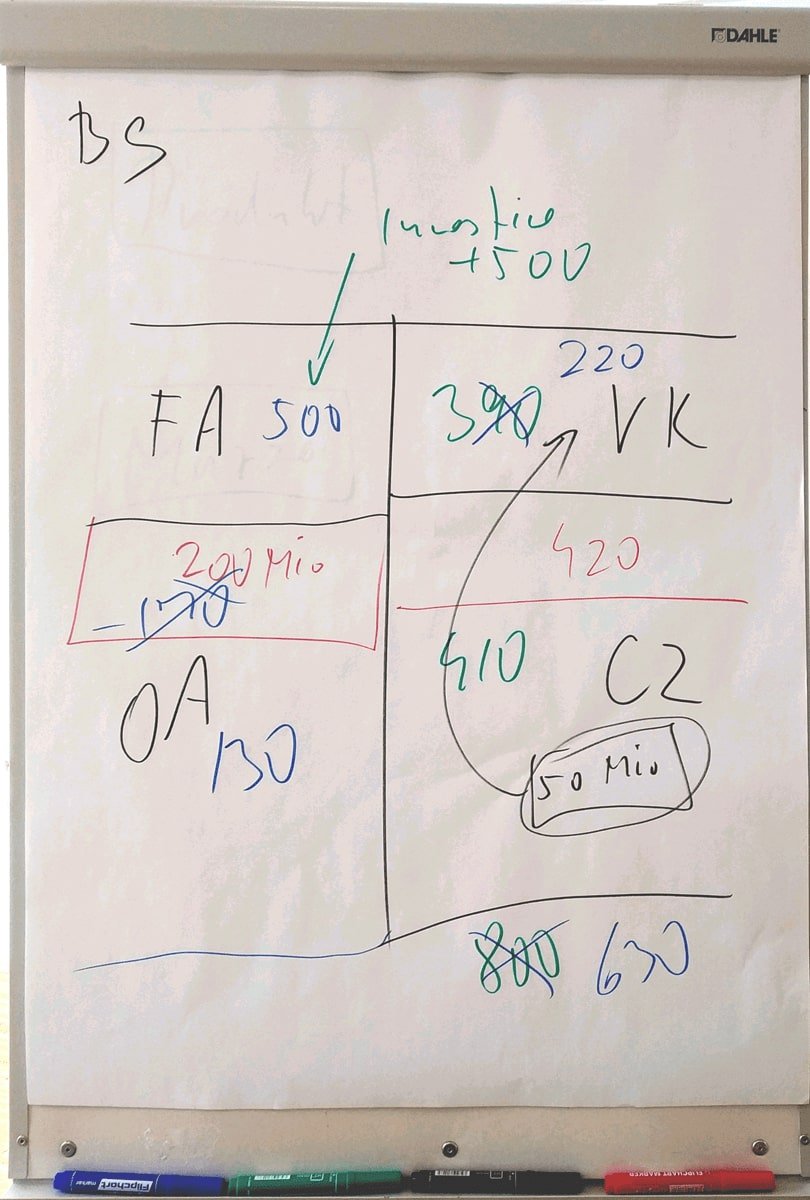 DAHLE
BS
Investice
+500
220
FA 500
390 VK
200 Mio
-170
420
410 CZ
OA
130
50 Mio
800 630
Flipchart
marker
FLIPCHART MARKER